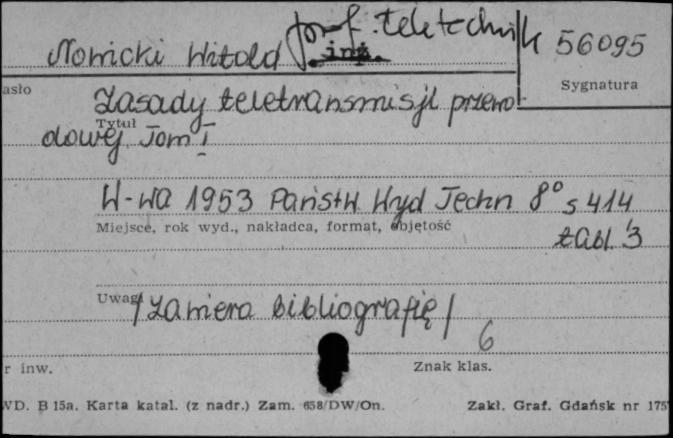 Nowicki Witold prof. teletechnik 56095
inż.
asło
Sygnatura
Zasady teletransmisji przewo-
Tytuł
dowej Tom I
W-wa 1953 Państw Wyd Techn 8° s 414
Miejsce, rok wyd., nakładca, format, objętość
tabl. 3
Uwagi /zawiera bibliografię/
6
r inw.
Znak klas.
WD. B 15a. Karta katal. (z nadr.) Zam. 658/DW/On.
Zakł. Graf. Gdańsk nr 175